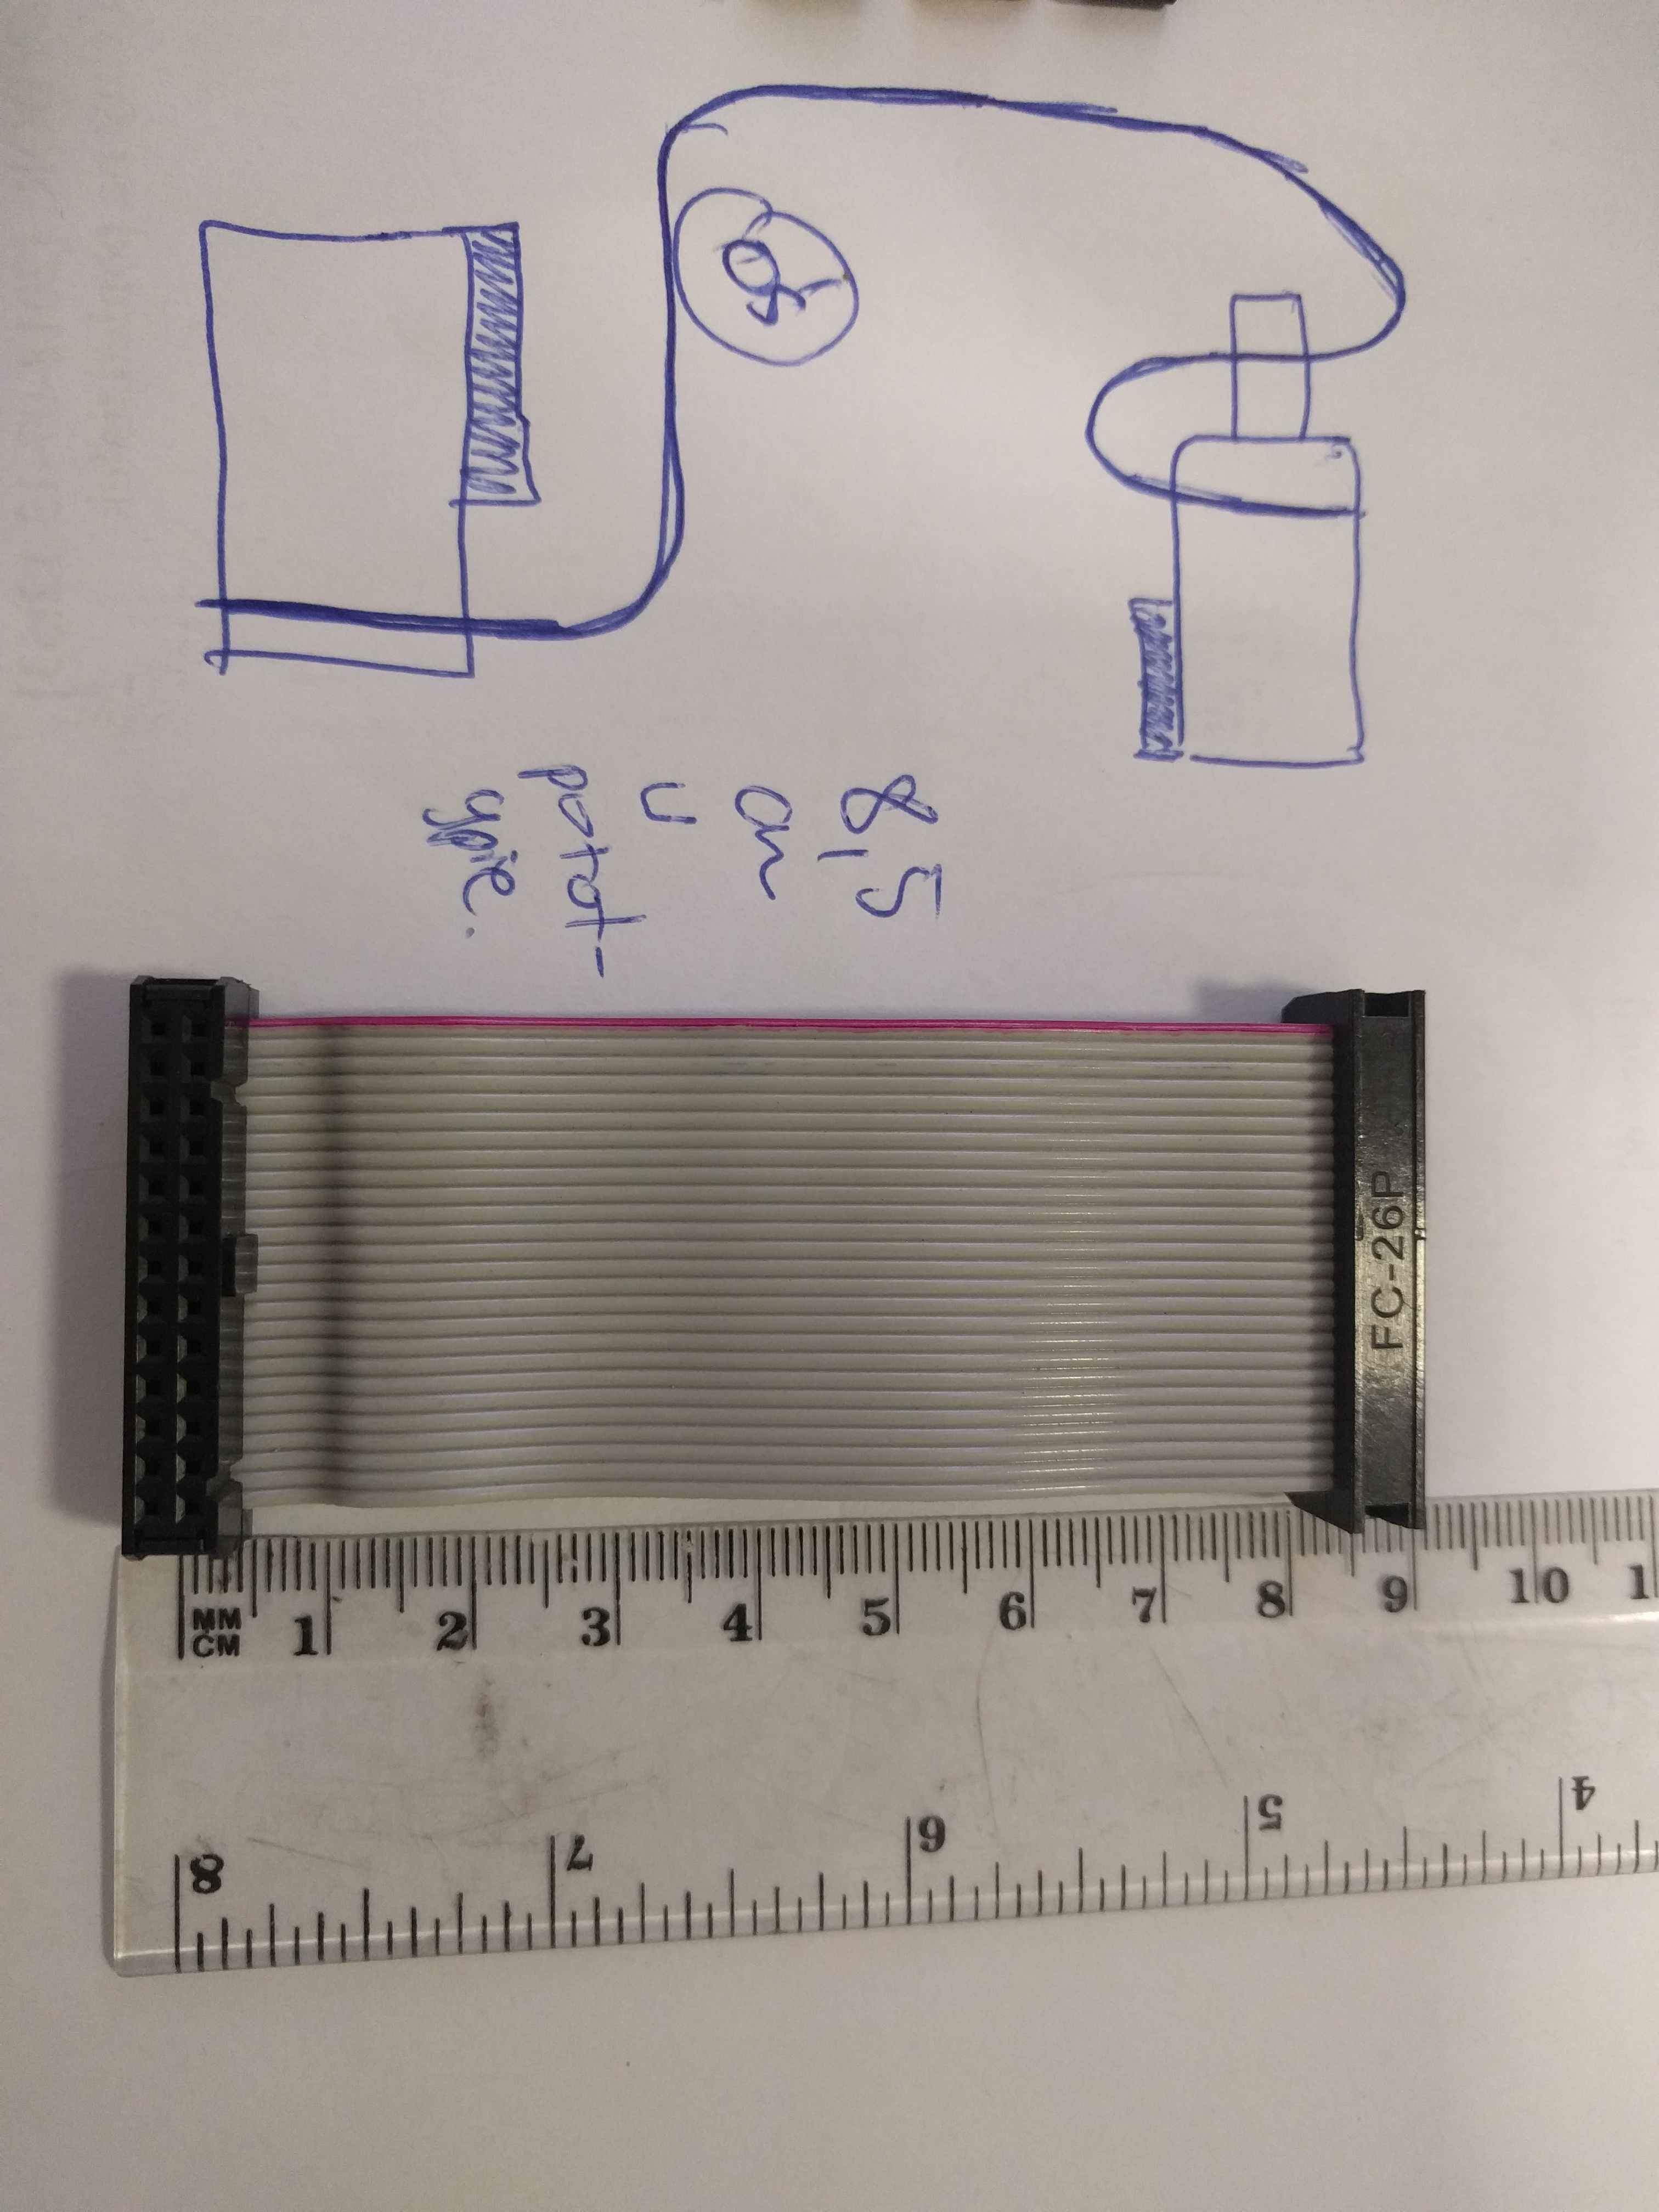 8,5
cm
u
potot-
ypie.
FC-26P
MM
CM 1 2 3 4 5 6 7 8 9 10
8 7 6 5 4